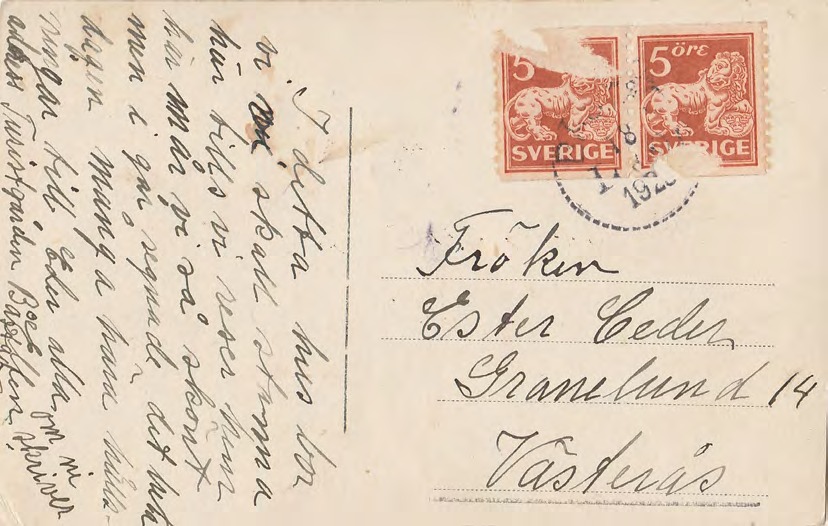 I detta hus bor
vi och skall stanna
här tills vi reser hem
här mår vi så skönt
men i går regnade det hela
dagen många kära häls-
ningar till Eder alla,
adress Turistgården Båstad
om ni skriver
5
SVERIGE
5 ÖRE
SVERIGE
18
192
Fröken
Ester Ceder
Granelund 14
Västerås